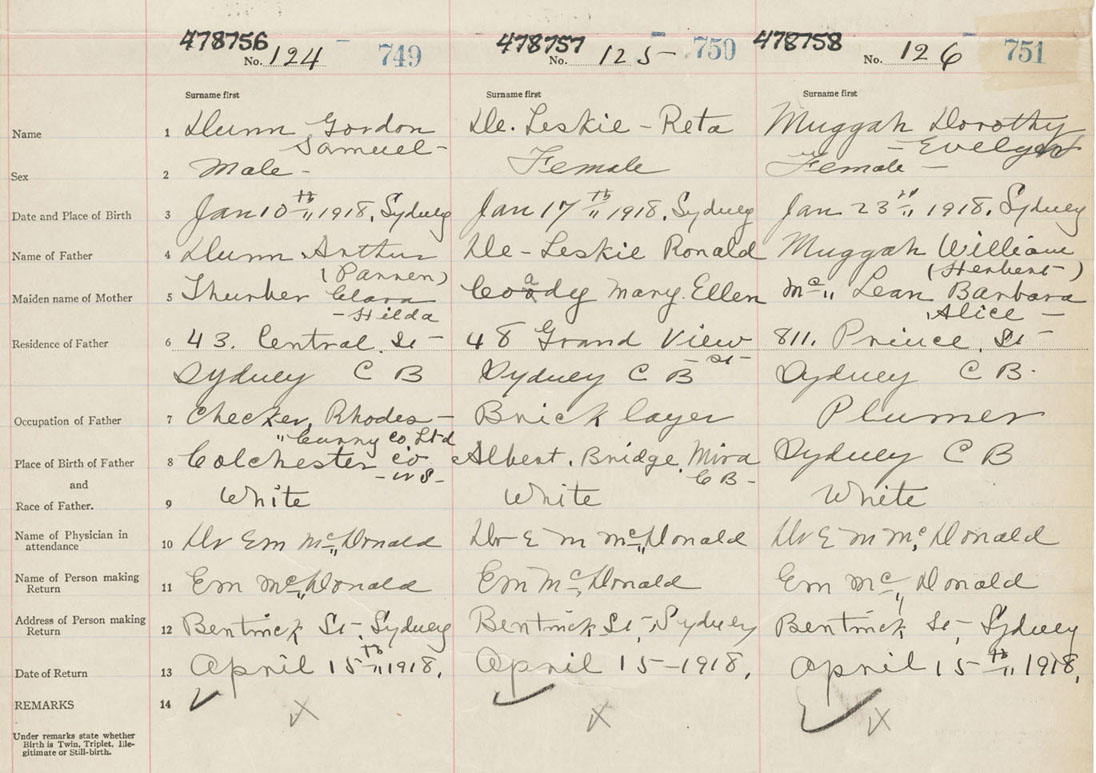 478756 478757 478758
No. 124 749 No. 125 750 No. 126 751
Surname first Surname first Surname first
Name 1 Dunn Gordon De. Leskie - Reta Muggah Dorothy
Samuel - - Evelyn
Sex 2 Male - Female Female -
Date and Place of Birth 3 Jan 10th 1918, Sydney Jan 17th 1918, Sydney Jan 23rd 1918, Sydney
Name of Father 4 Dunn Arthur De - Leskie Ronald Muggah William
(Parren) (Herbert)
Maiden name of Mother 5 Thurber Clara Coady Mary. Ellen Mc Lean Barbara
- Hilda Alice -
Residence of Father 6 43. Central. St - 48 Grand View 811. Prince. St -
- St -
Sydney C B Sydney C B Sydney C B.
Occupation of Father 7 Checker, Rhodes - Brick layer Plumer
" Curry Co. Ltd
Place of Birth of Father 8 Colchester Co Albert. Bridge, Mira Sydney C B
- N S - C B -
and
Race of Father. 9 White White White
Name of Physician in
attendance 10 Dr Em McDonald Dr E M McDonald Dr E M McDonald
Name of Person making
Return 11 Em McDonald Em McDonald Em McDonald
Address of Person making
Return 12 Bentinck St, Sydney Bentinck St, Sydney Bentinck St, Sydney
Date of Return 13 April 15th 1918, April 15 - 1918, April 15th 1918,
REMARKS 14 ✓ X ✓ X ✓ X
Under remarks state whether
Birth is Twin, Triplet, Ille-
gitimate or Still-birth.